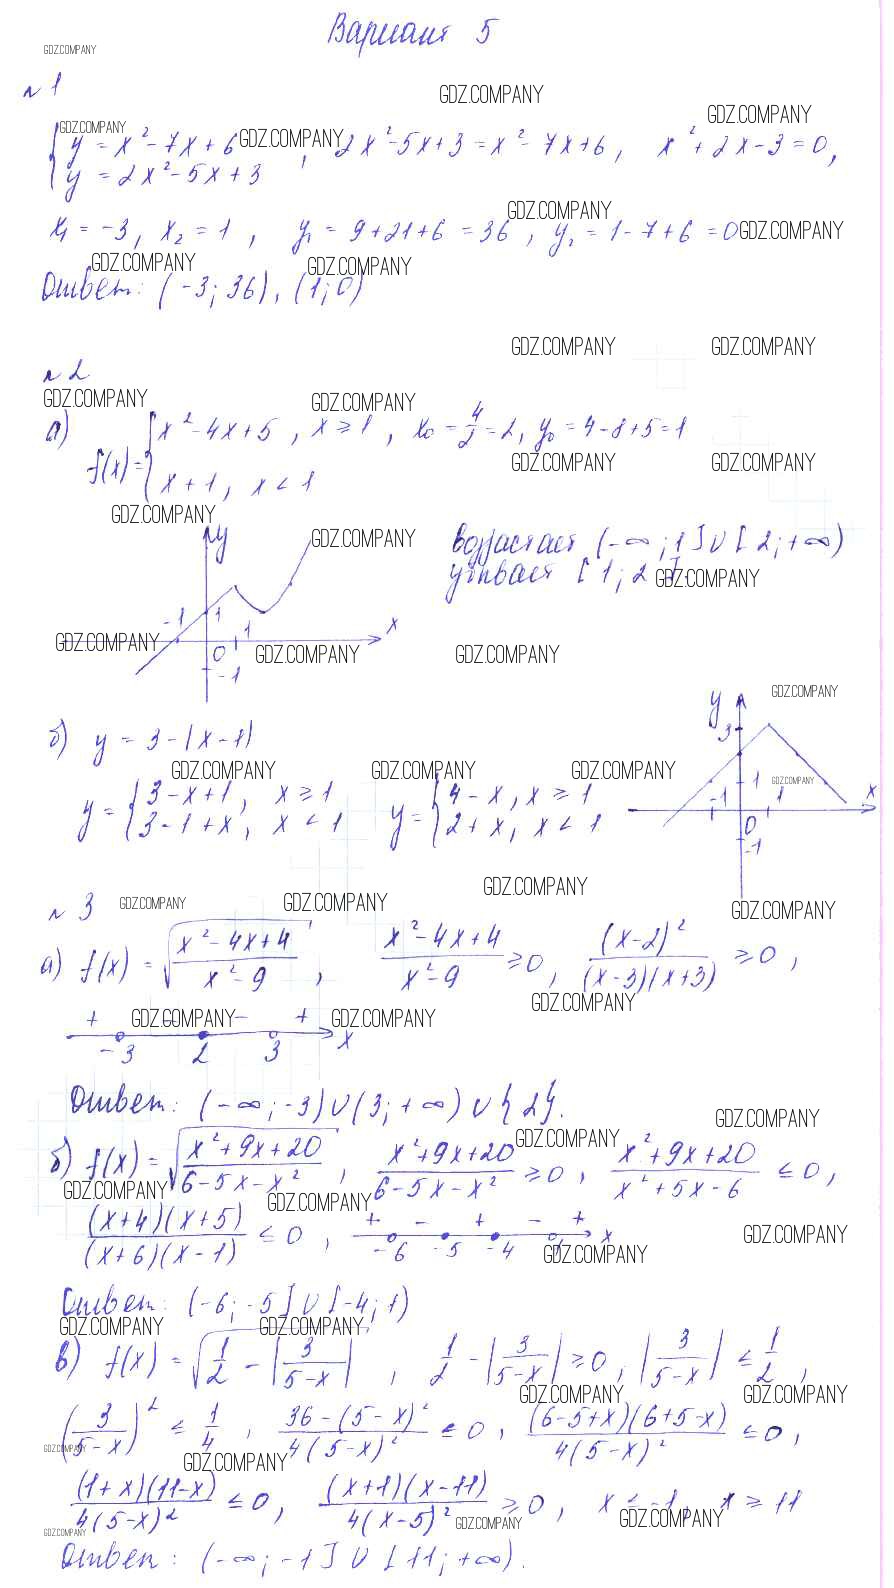 Вариант 5
GDZ.COMPANY
№1
GDZ.COMPANY
GDZ.COMPANY
GDZ.COMPANY GDZ.COMPANY
{ y = x² - 7x + 6 , 2x² - 5x + 3 = x² - 7x + 6, x² + 2x - 3 = 0,
y = 2x² - 5x + 3
GDZ.COMPANY
x₁ = -3, x₂ = 1, y₁ = 9 + 21 + 6 = 36, y₂ = 1 - 7 + 6 = 0 GDZ.COMPANY
GDZ.COMPANY GDZ.COMPANY
Ответ: (-3; 36), (1; 0)
GDZ.COMPANY GDZ.COMPANY
№2
GDZ.COMPANY GDZ.COMPANY
а) f(x) = { x² - 4x + 5, x ≥ 1, x₀ = 4/2 = 2, y₀ = 4 - 8 + 5 = 1
x + 1, x < 1
GDZ.COMPANY GDZ.COMPANY
GDZ.COMPANY
y GDZ.COMPANY возрастает (-∞; 1] ∪ [2; +∞)
убывает [1; 2]. GDZ.COMPANY
-1 1 1 x
GDZ.COMPANY 0 GDZ.COMPANY GDZ.COMPANY
-1
GDZ.COMPANY
б) y = 3 - |x - 1|
y 3
GDZ.COMPANY GDZ.COMPANY GDZ.COMPANY GDZ.COMPANY
y = { 3 - x + 1, x ≥ 1 y = { 4 - x, x ≥ 1
3 - 1 + x, x < 1 2 + x, x < 1
1 -1 1 x
0
-1
GDZ.COMPANY
№3 GDZ.COMPANY GDZ.COMPANY GDZ.COMPANY
а) f(x) = √((x² - 4x + 4)/(x² - 9)), (x² - 4x + 4)/(x² - 9) ≥ 0, (x - 2)²/((x - 3)(x + 3)) ≥ 0,
GDZ.COMPANY
+ GDZ.COMPANY - - + GDZ.COMPANY
-3 2 3 x
Ответ: (-∞; -3) ∪ (3; +∞) ∪ {2}.
GDZ.COMPANY
GDZ.COMPANY
б) f(x) = √((x² + 9x + 20)/(6 - 5x - x²)), (x² + 9x + 20)/(6 - 5x - x²) ≥ 0, (x² + 9x + 20)/(x² + 5x - 6) ≤ 0,
GDZ.COMPANY GDZ.COMPANY
((x + 4)(x + 5))/((x + 6)(x - 1)) ≤ 0, + - + - +
-6 -5 -4 1 x
GDZ.COMPANY GDZ.COMPANY
Ответ: (-6; -5] ∪ [-4; 1)
GDZ.COMPANY GDZ.COMPANY
в) f(x) = √(1/2 - |3/(5 - x)|), 1/2 - |3/(5 - x)| ≥ 0, |3/(5 - x)| ≤ 1/2,
GDZ.COMPANY GDZ.COMPANY
(3/(5 - x))² ≤ 1/4, (36 - (5 - x)²)/(4(5 - x)²) ≤ 0, ((6 - 5 + x)(6 + 5 - x))/(4(5 - x)²) ≤ 0,
GDZ.COMPANY
GDZ.COMPANY
((1 + x)(11 - x))/(4(5 - x)²) ≤ 0, ((x + 1)(x - 11))/(4(x - 5)²) ≥ 0, x ≤ -1, x ≥ 11
GDZ.COMPANY GDZ.COMPANY GDZ.COMPANY
Ответ: (-∞; -1] ∪ [11; +∞).